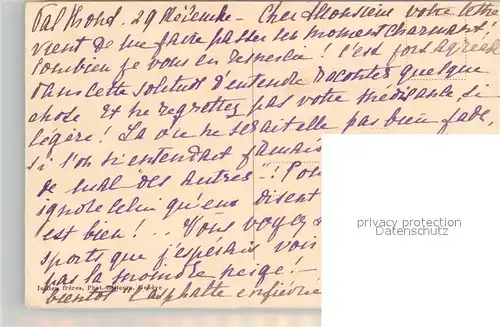 29 Décembre - Cher Monsieur votre lettre
vient de me faire passer les moments charmants!
Combien je vous en remercie! C'est fort agréable
dans cette solitude d'entendre raconter quelque
chose Et ne regrettez pas votre médisance, si
légère! La vie ne serait elle pas bien fade,
si l'on n'entendait jamais
de mal des autres"!
ignore celui qu'eux disent
est bien! .. Vous voyez
sports que j'espérais voir
pas la moindre neige! -
Jullien frères, Phot.-Editeurs, Genève
bientôt l'asphalte
privacy protection
www.ansichtskartenversand.com